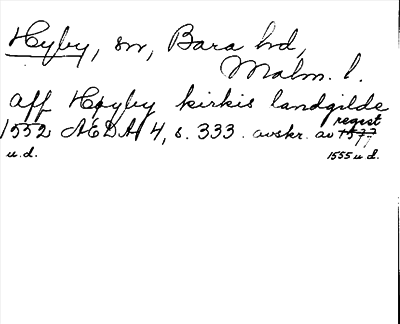 Hyby, sn, Bara hd,
Malm. l.
aff Høyby kirkis landgilde
regist
1552 AEDA 4, s. 333. avskr. av 1577
u.d. 1555 u d.